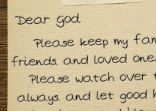 Dear god
Please keep my fam
friends and loved one
Please watch over
always, and let good